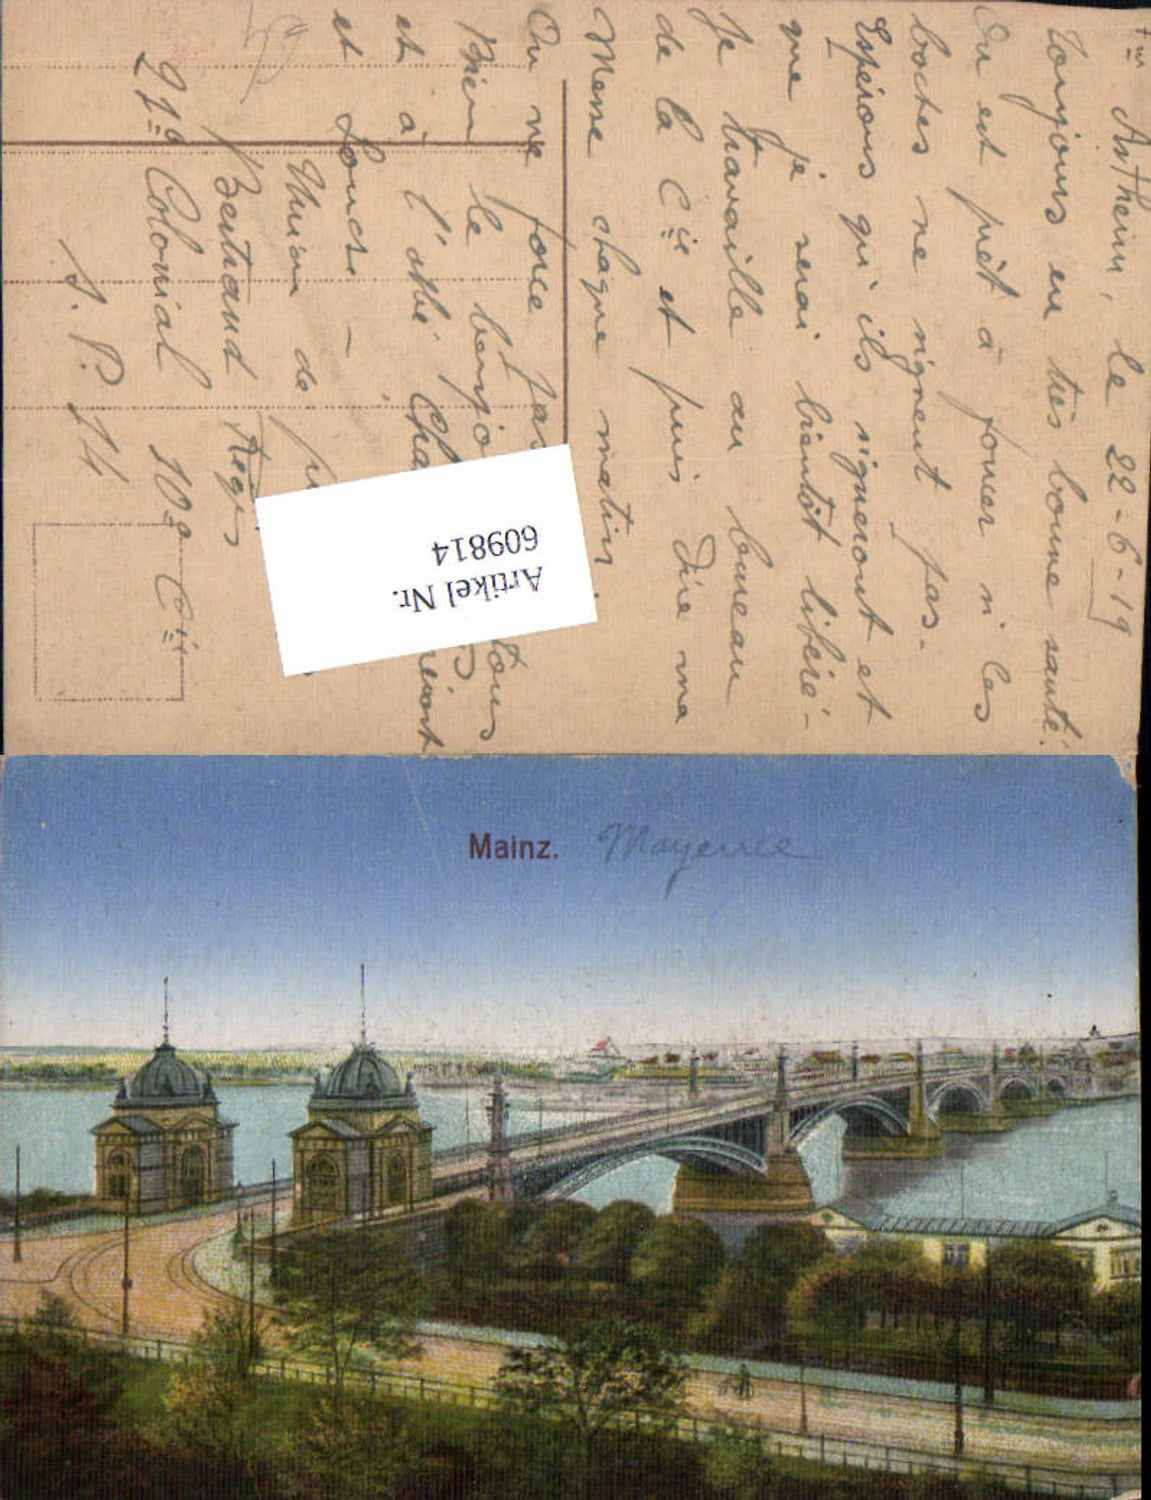 Astheim, le 22-6-19
Toujours en très bonne santé.
On est prêt à foncer si les
boches ne signent pas.
Espérons qu'ils signeront et
que je serai bientôt libéré.
Je travaille au bureau
de la Cie et puis dire ma
Messe chaque matin.
On ne fonce pas
Bien le bonjo tous
et à l'abbé
et
Union de
Bertrand Régis
21e Colonial 10e Cie
S. P. 14
Artikel Nr.
609814
Mainz. Mayence